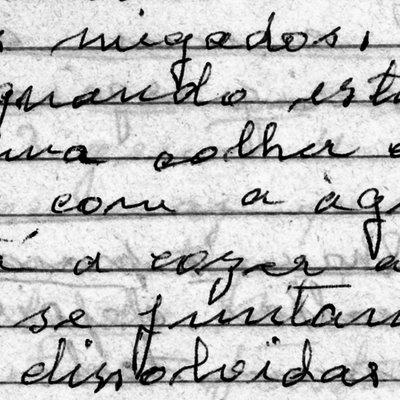 s migados,
quando est
uma colher d
com a àg
á a cozer a
se juntam
dissolvidas